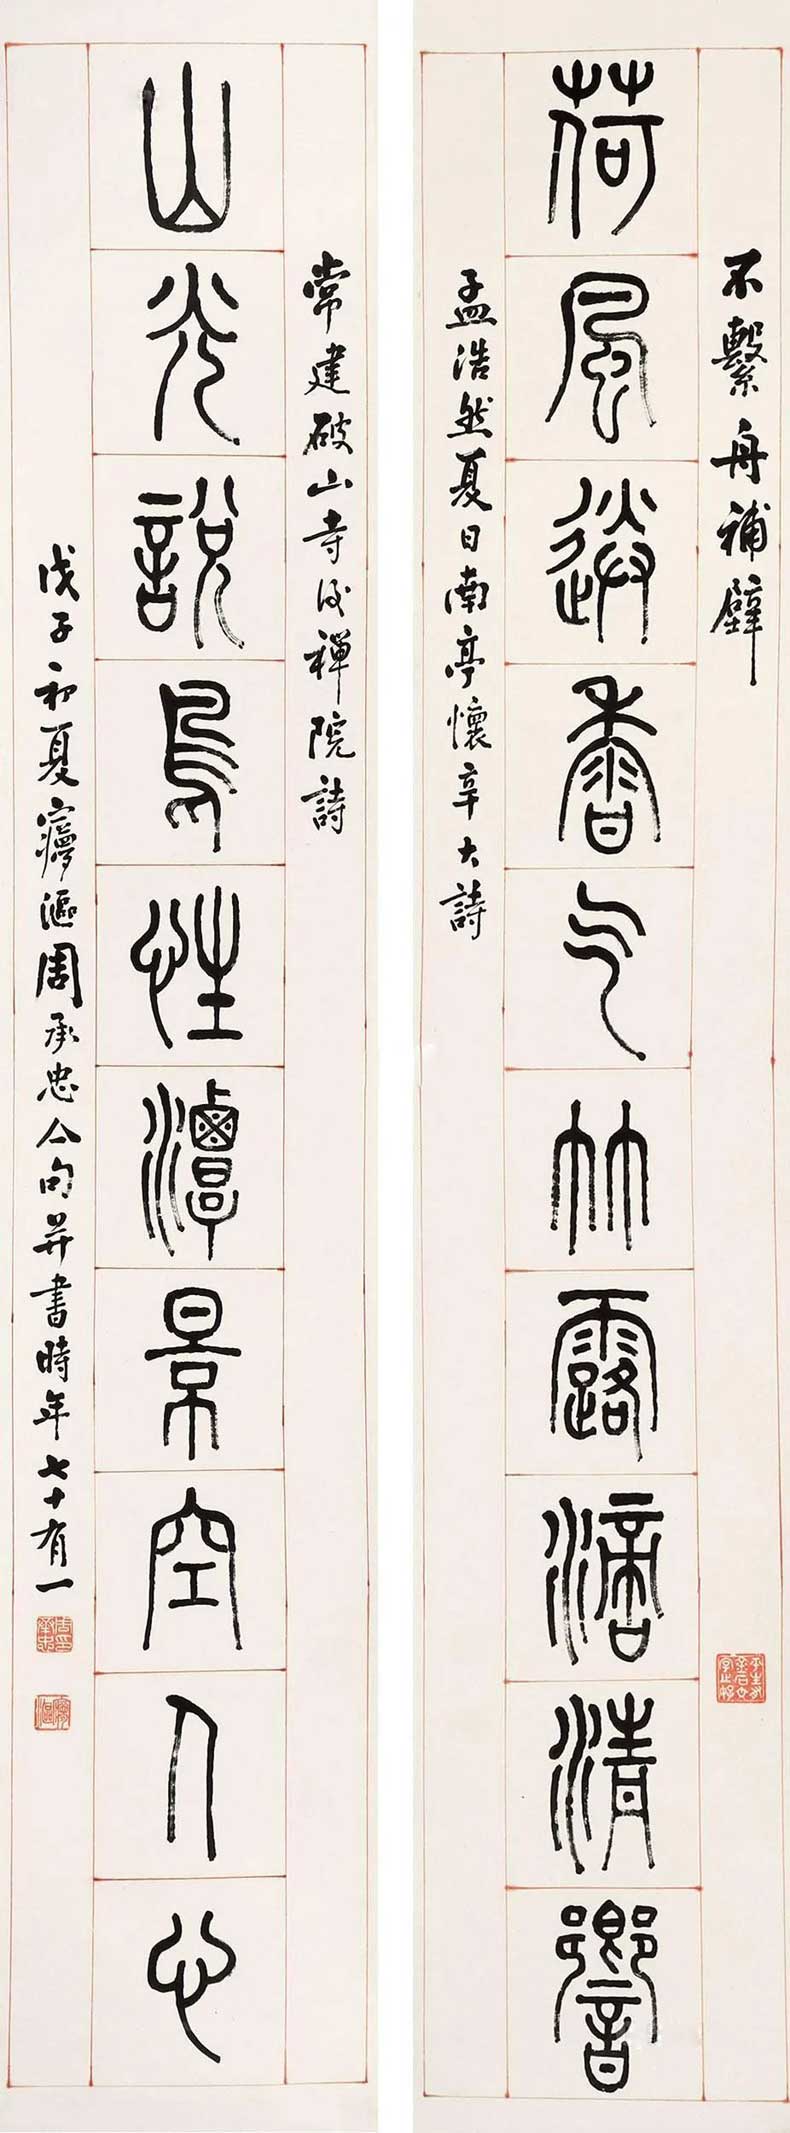 不繫舟補壁
荷風送香气竹露滴清響
孟浩然夏日南亭懷辛大詩
常建破山寺後禪院詩
山光說鳥性潭景空人心
戊子初夏㝱漚周承忠亼句并書時年七十有一